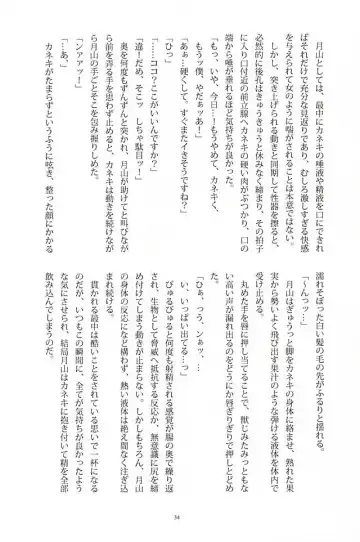 月山としては、最中にカネキの唾液や精液を口にできれ
ばそれだけで充分な見返りであり、むしろ激しすぎる快感
を与えられて女のように喘がされることは本意ではない。
しかし、突き上げられる動きと同期して性器を擦ると、
必然的に後孔はきゅうきゅうと休みなく締まり、その拍子
に入り口付近の前立腺へカネキの硬い肉がぶつかり、口の
端から唾が垂れるほど気持ちが良かった。
「もっ、いや、今日…！もうやめて、カネキく、
もうッ僕、やだぁッ…！」
「あぁ…硬くして。すぐまたイきそうですね？」
「ひっ」
「……ココ？ここがいいんですか？」
「違！だめ、そこッ　しちゃ駄目ッ！」
奥を何度もずんずんと突かれ、月山は助けてと叫びなが
ら前を弄る手を思わず止めると、カネキは動きを続けなが
ら月山の手ごとそこを包み握りしめた。
「ンァァッ！」
「…あ、」
カネキがたまらずというふうに呟き、整った顔にかかる
濡れそぼった白い髪の毛の先がふるりと揺れる。
「～んっッ…！」
月山はぎゅうっと脚をカネキの身体に絡ませ、熟れた果
実から勢いよく飛び出す果汁のような弾ける液体を体内で
受け止める。
丸めた手を唇に押し当てることで、獣じみたみっともな
い高い声が漏れ出るのをどうにか唇ぎりぎりで押しとどめ
た。
「ひぁっ、うう、ンぁッ…、…」
い、いっぱい出てる…っ」
びゅるびゅると何度も射精される感覚が腸の奥で繰り返
され、生物として脅威へ抵抗する反応か、無意識に尻を締
め付けてしまう動きが止まらない。しかしもちろん、月山
の身体の反応になど構わず、熱い液体は絶え間なく注ぎ込
まれ続ける。
貫かれる最中は酷いことをされている思いで一杯になる
のだが、いつもこの瞬間に、全てが気持ちが良かったよう
な気にさせられ、結局月山はカネキに抱き付いて精を全部
飲み込んでしまうのだ。
34